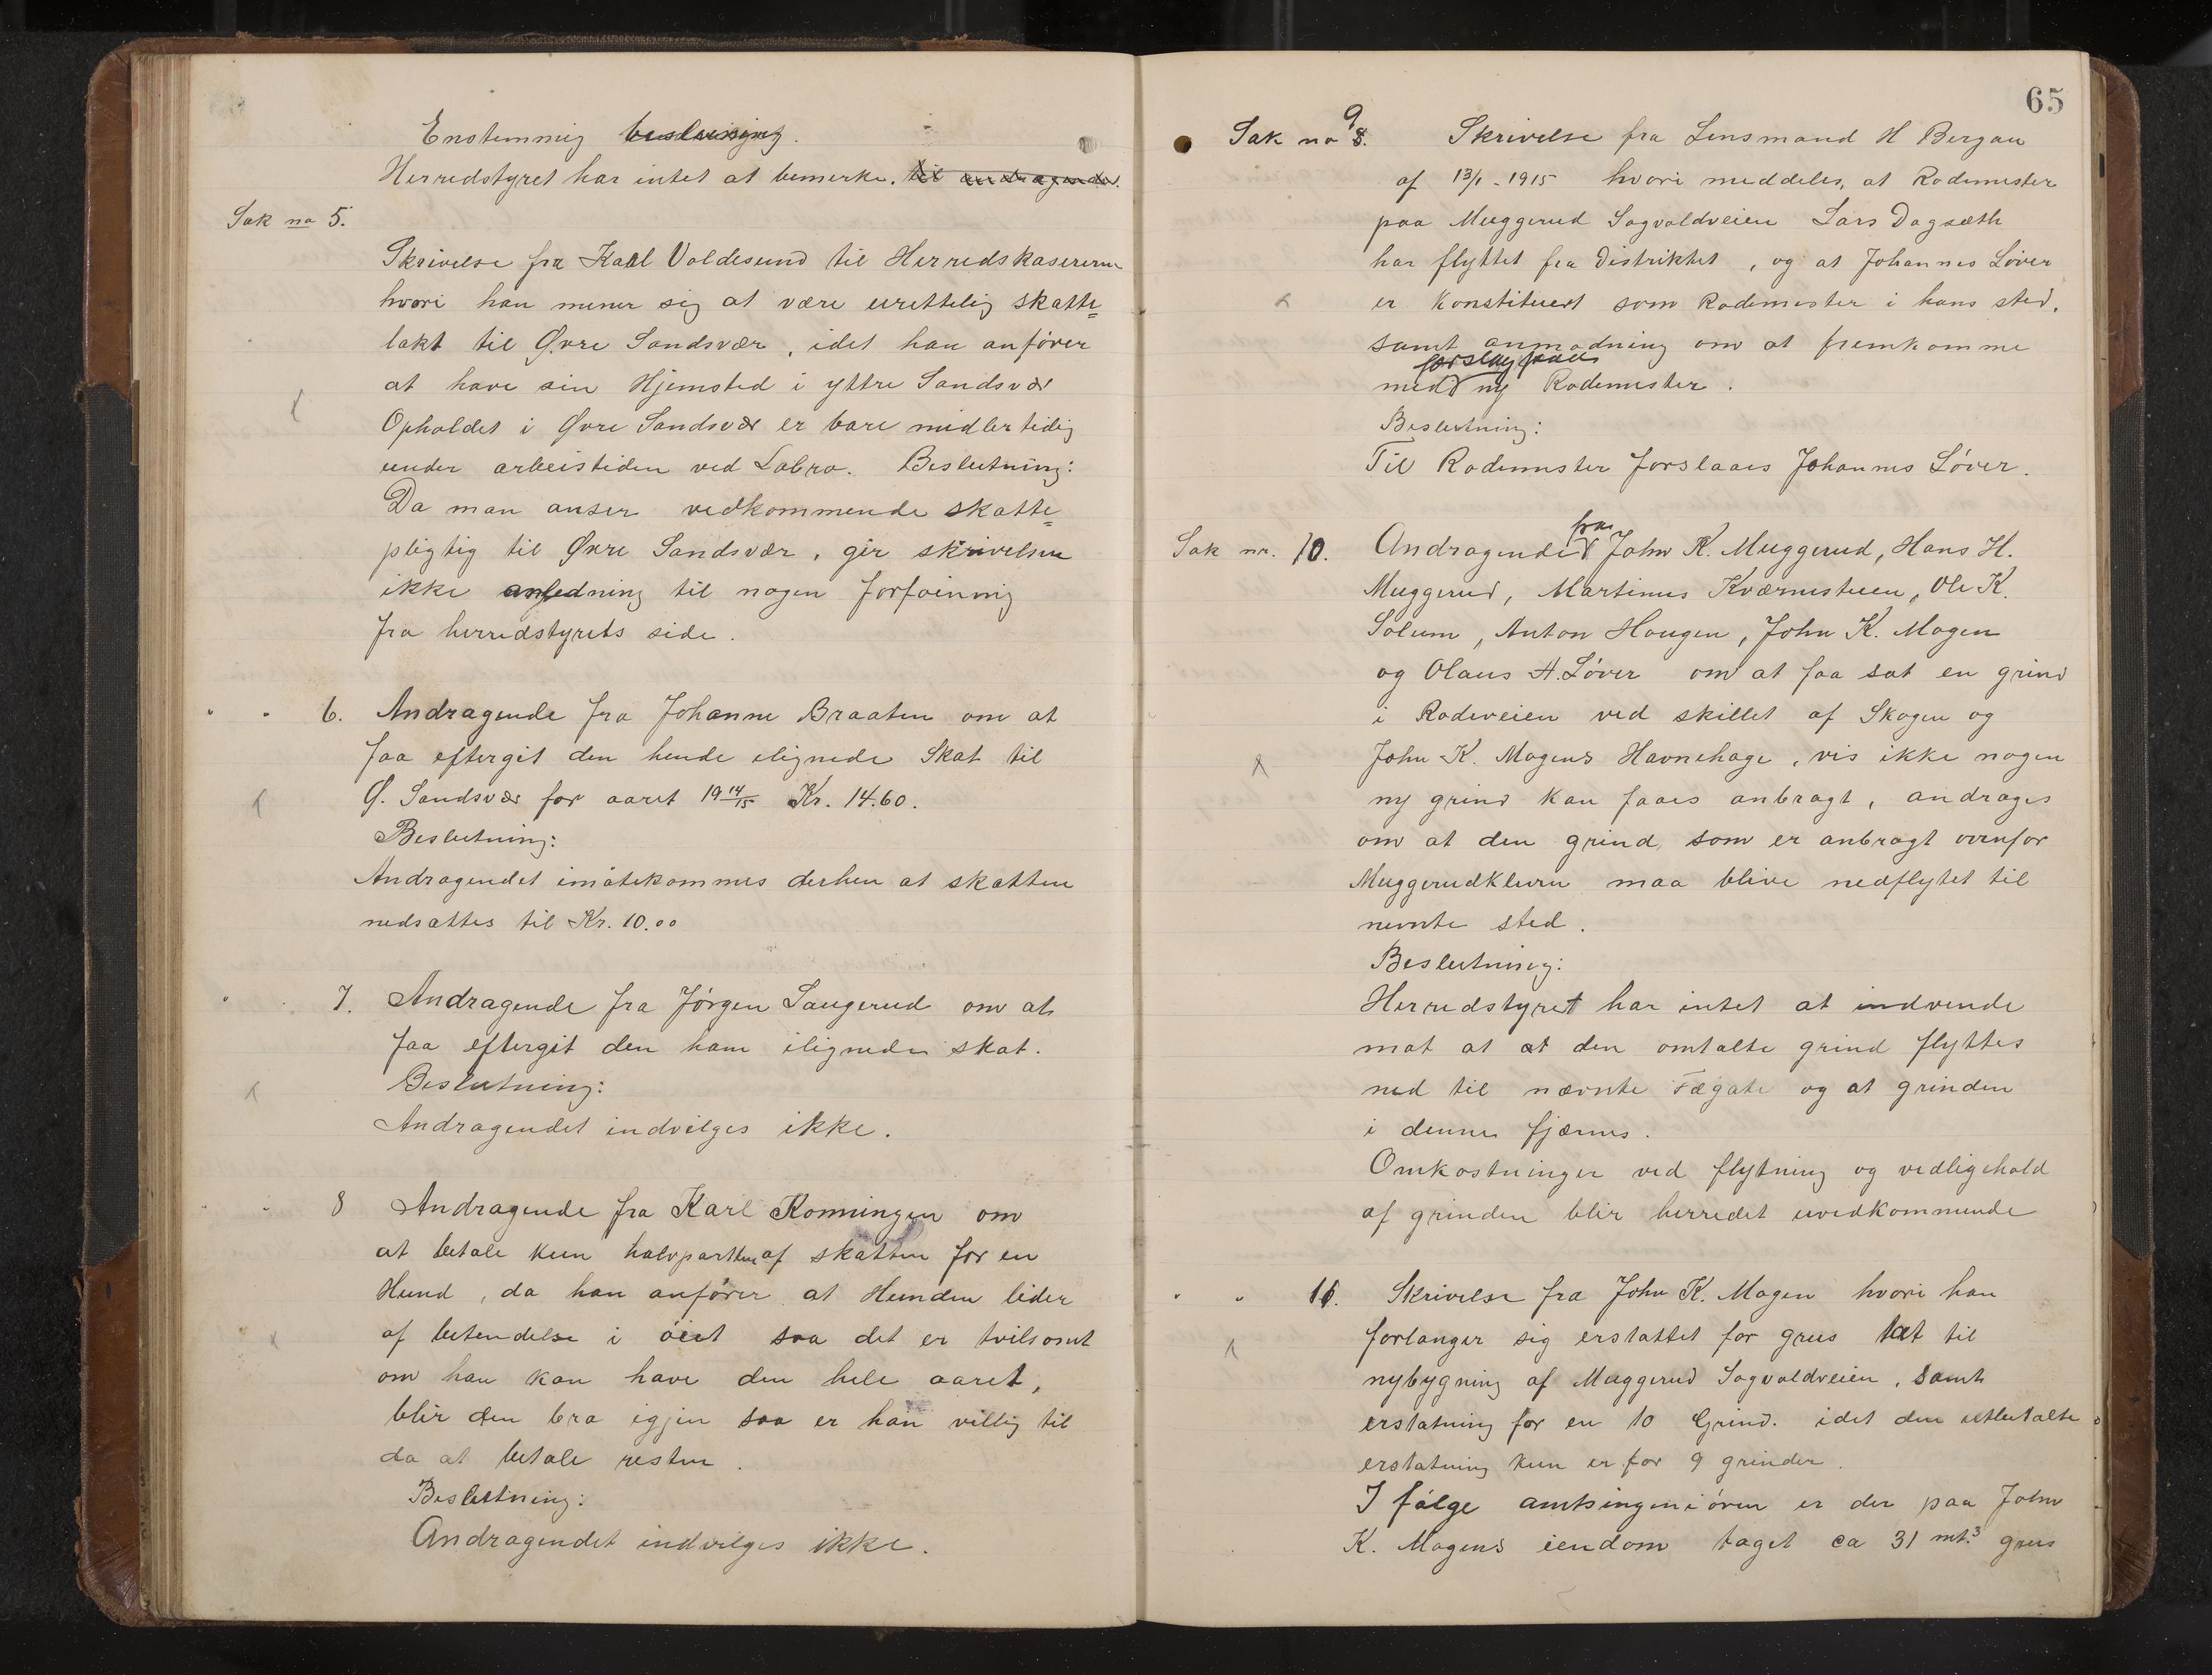 Enstemmig beslutning.
Herredstyret har intet at bemerke. til andragendet.
Sak no 5.
Skrivelse fra Karl Voldesund til Herredskasereren
hvori han mener sig at være urettelig skatte=
lakt til Øvre Sandsvær, idet han anfører
at have sin Hjemsted i yttre Sandsvær
Opholdet i Øvre Sandsvær er bare midlertidig
under arbeistiden ved Labro. Beslutning:
Da man anser vedkommende skatte=
pligtig til Øvre Sandsvær, gir skrivelsen
ikke anledning til nogen forføining
fra herredstyrets side.
" " 6. Andragende fra Johanne Braaten om at
faa eftergit den hende ilignede Skat til
Ø. Sandsvær for aaret 19 14/15 Kr. 14.60.
Beslutning:
Andragendet imøtekommes derhen at skatten
nedsættes til Kr. 10.00
" " 7. Andragende fra Jørgen Saugerud om at
faa eftergit den ham ilignede skat.
Beslutning:
Andragendet indvilges ikke.
" " 8 Andragende fra Karl Konningen om
at betale kun halvparten af skatten for en
Hund, da han anfører at Hunden lider
af betendelse i øiet saa det er tvilsomt
om han kan have den hele aaret,
blir den bra igjen saa er han villig til
da at betale resten.
Beslutning:
Andragendet indvilges ikke.
65
Sak no 8. 9 Skrivelse fra Lensmand H Bergan
af 13/1 - 1915 hvori meddeles, at Rodemester
paa Muggerud Sagvoldveien Lars Dagsæth
har flyttet fra Distriktet, og at Johannes Løver
er Konstituert som Rodemester i hans sted,
samt anmodning om at fremkomme
forslag paa
med ny Rodemester.
Beslutning:
Til Rodemester forslaaes Johannes Løver.
Sak nr. 10. Andragende fra John K. Muggerud, Hans H.
Muggerud, Martinus Kværnstuen, Ole K.
Solum, Anton Haugen, John K. Mogen
og Olaus A. Løver om at faa sat en grind
i Rodeveien ved skillet af Skogen og
John K. Mogens Havnehage, vis ikke nogen
ny grind kan faaes anbragt, andrages
om at den grind, som er anbragt ovenfor
Muggerudkleven maa blive nedflytet til
nevnte sted.
Beslutning:
Herredstyret har intet at indvende
mot at at den omtalte grind flyttes
ned til nævnte Fægate og at grinden
i denne fjærnes.
Omkostninger ved flytning og vedligehold
af grinden blir herredet uvedkommende
" " 11. Skrivelse fra John K. Mogen hvori han
forlanger sig erstattet for grus tat til
nybygning af Muggerud Sagvoldveien, samt
erstatning for en 10 Grind. idet den utbetalte
erstatning kun er for 9 grinder.
I følge amtsingeniøren er der paa John
K. Mogens eiendom taget ca 31 mt.3 grus